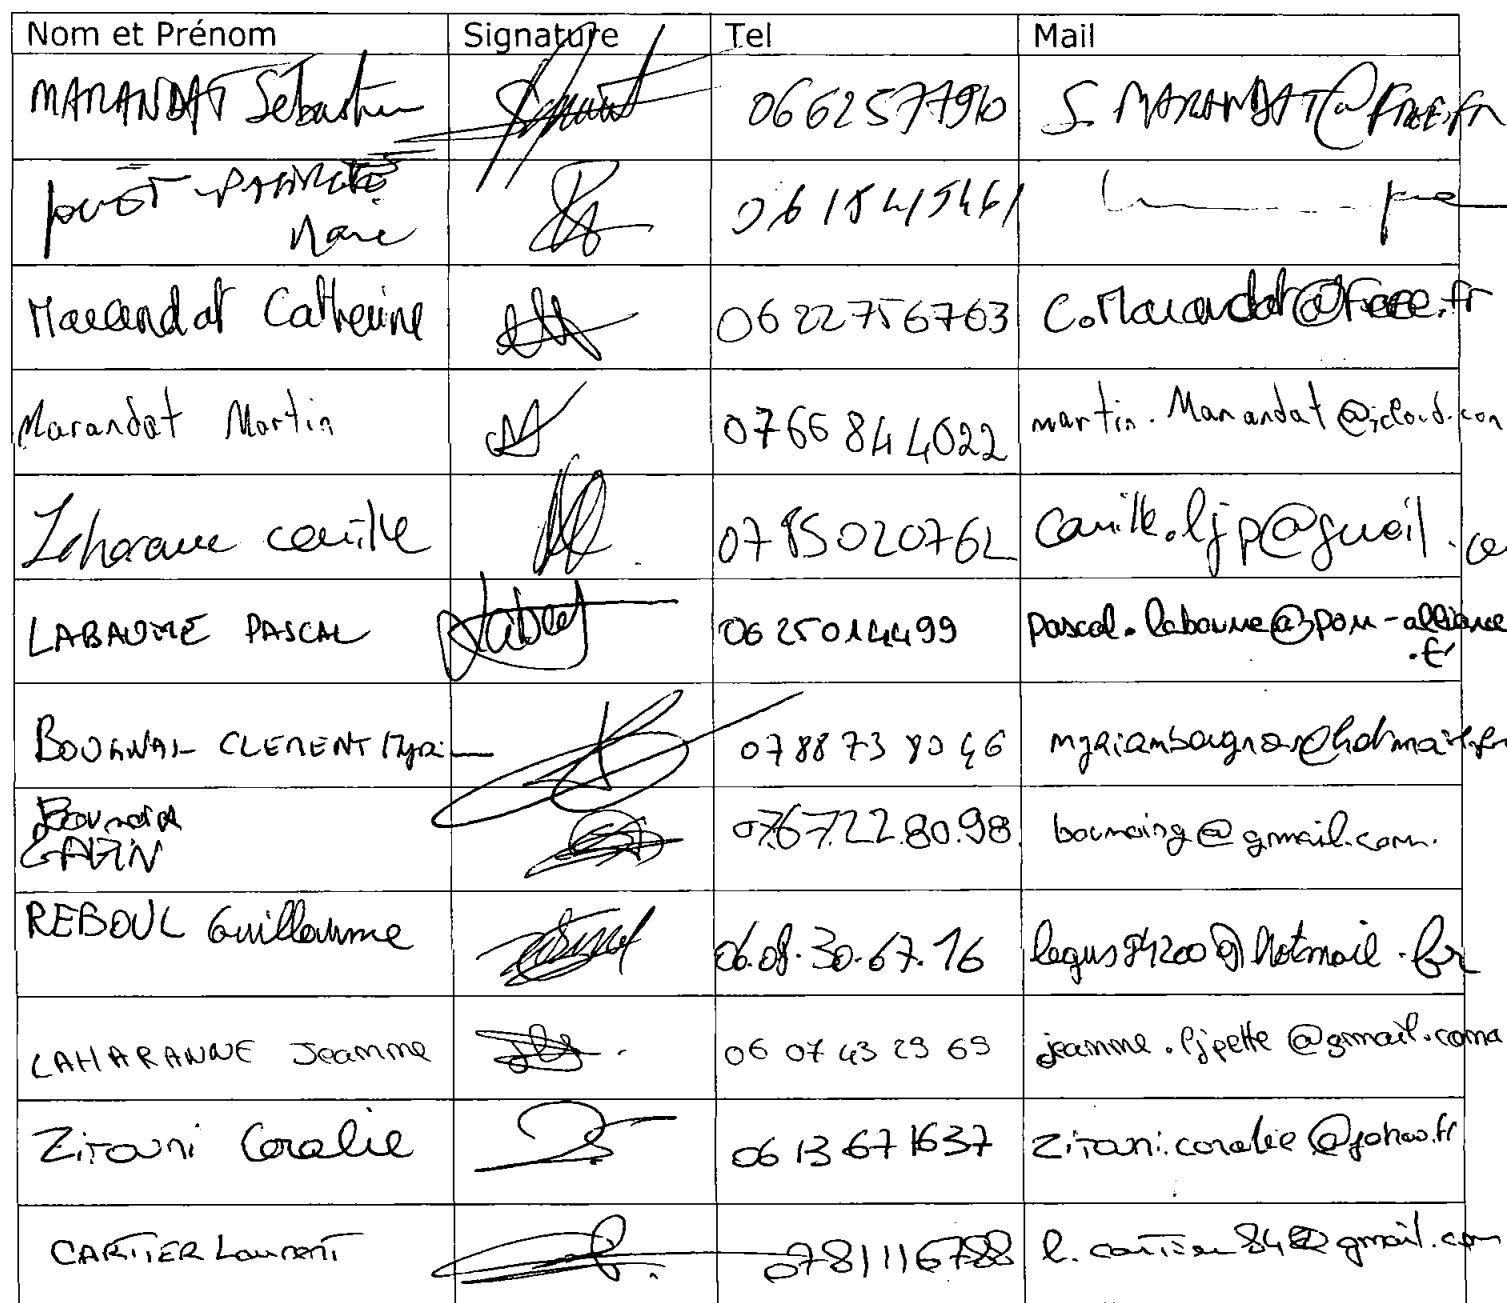 Nom et Prénom Signature Tel Mail
MARANDAT Sébastien 0662577990 S.MARANDAT@free.fr
Marie 0615415461
Marandat Catherine 0622756763 C.Marandat@free.fr
Marandat Martin 0766844022 martin.Marandat@icloud.com
Laharanne Camille 0785020762 camille.ljp@gmail.co
LABAUME PASCAL 0625014499 pascal.labaume@pom-alliance
.fr
BOUGNAS CLEMENT Myriam 0788738046 myriambougnas@hotmail.fr
Bounoir 07.67.22.80.98. bounoirg@gmail.com.
REBOUL Guillaume 06.08.30.67.16 legus84200@hotmail.fr
LAHARANNE Jeanne 06 07 43 29 69 jeanne.ljpette@gmail.com
Zitouni Coralie 06 13 67 1637 Zitouni.coralie@yahoo.fr
CARTIER Laurent 0781116788 l.cartier84@gmail.com